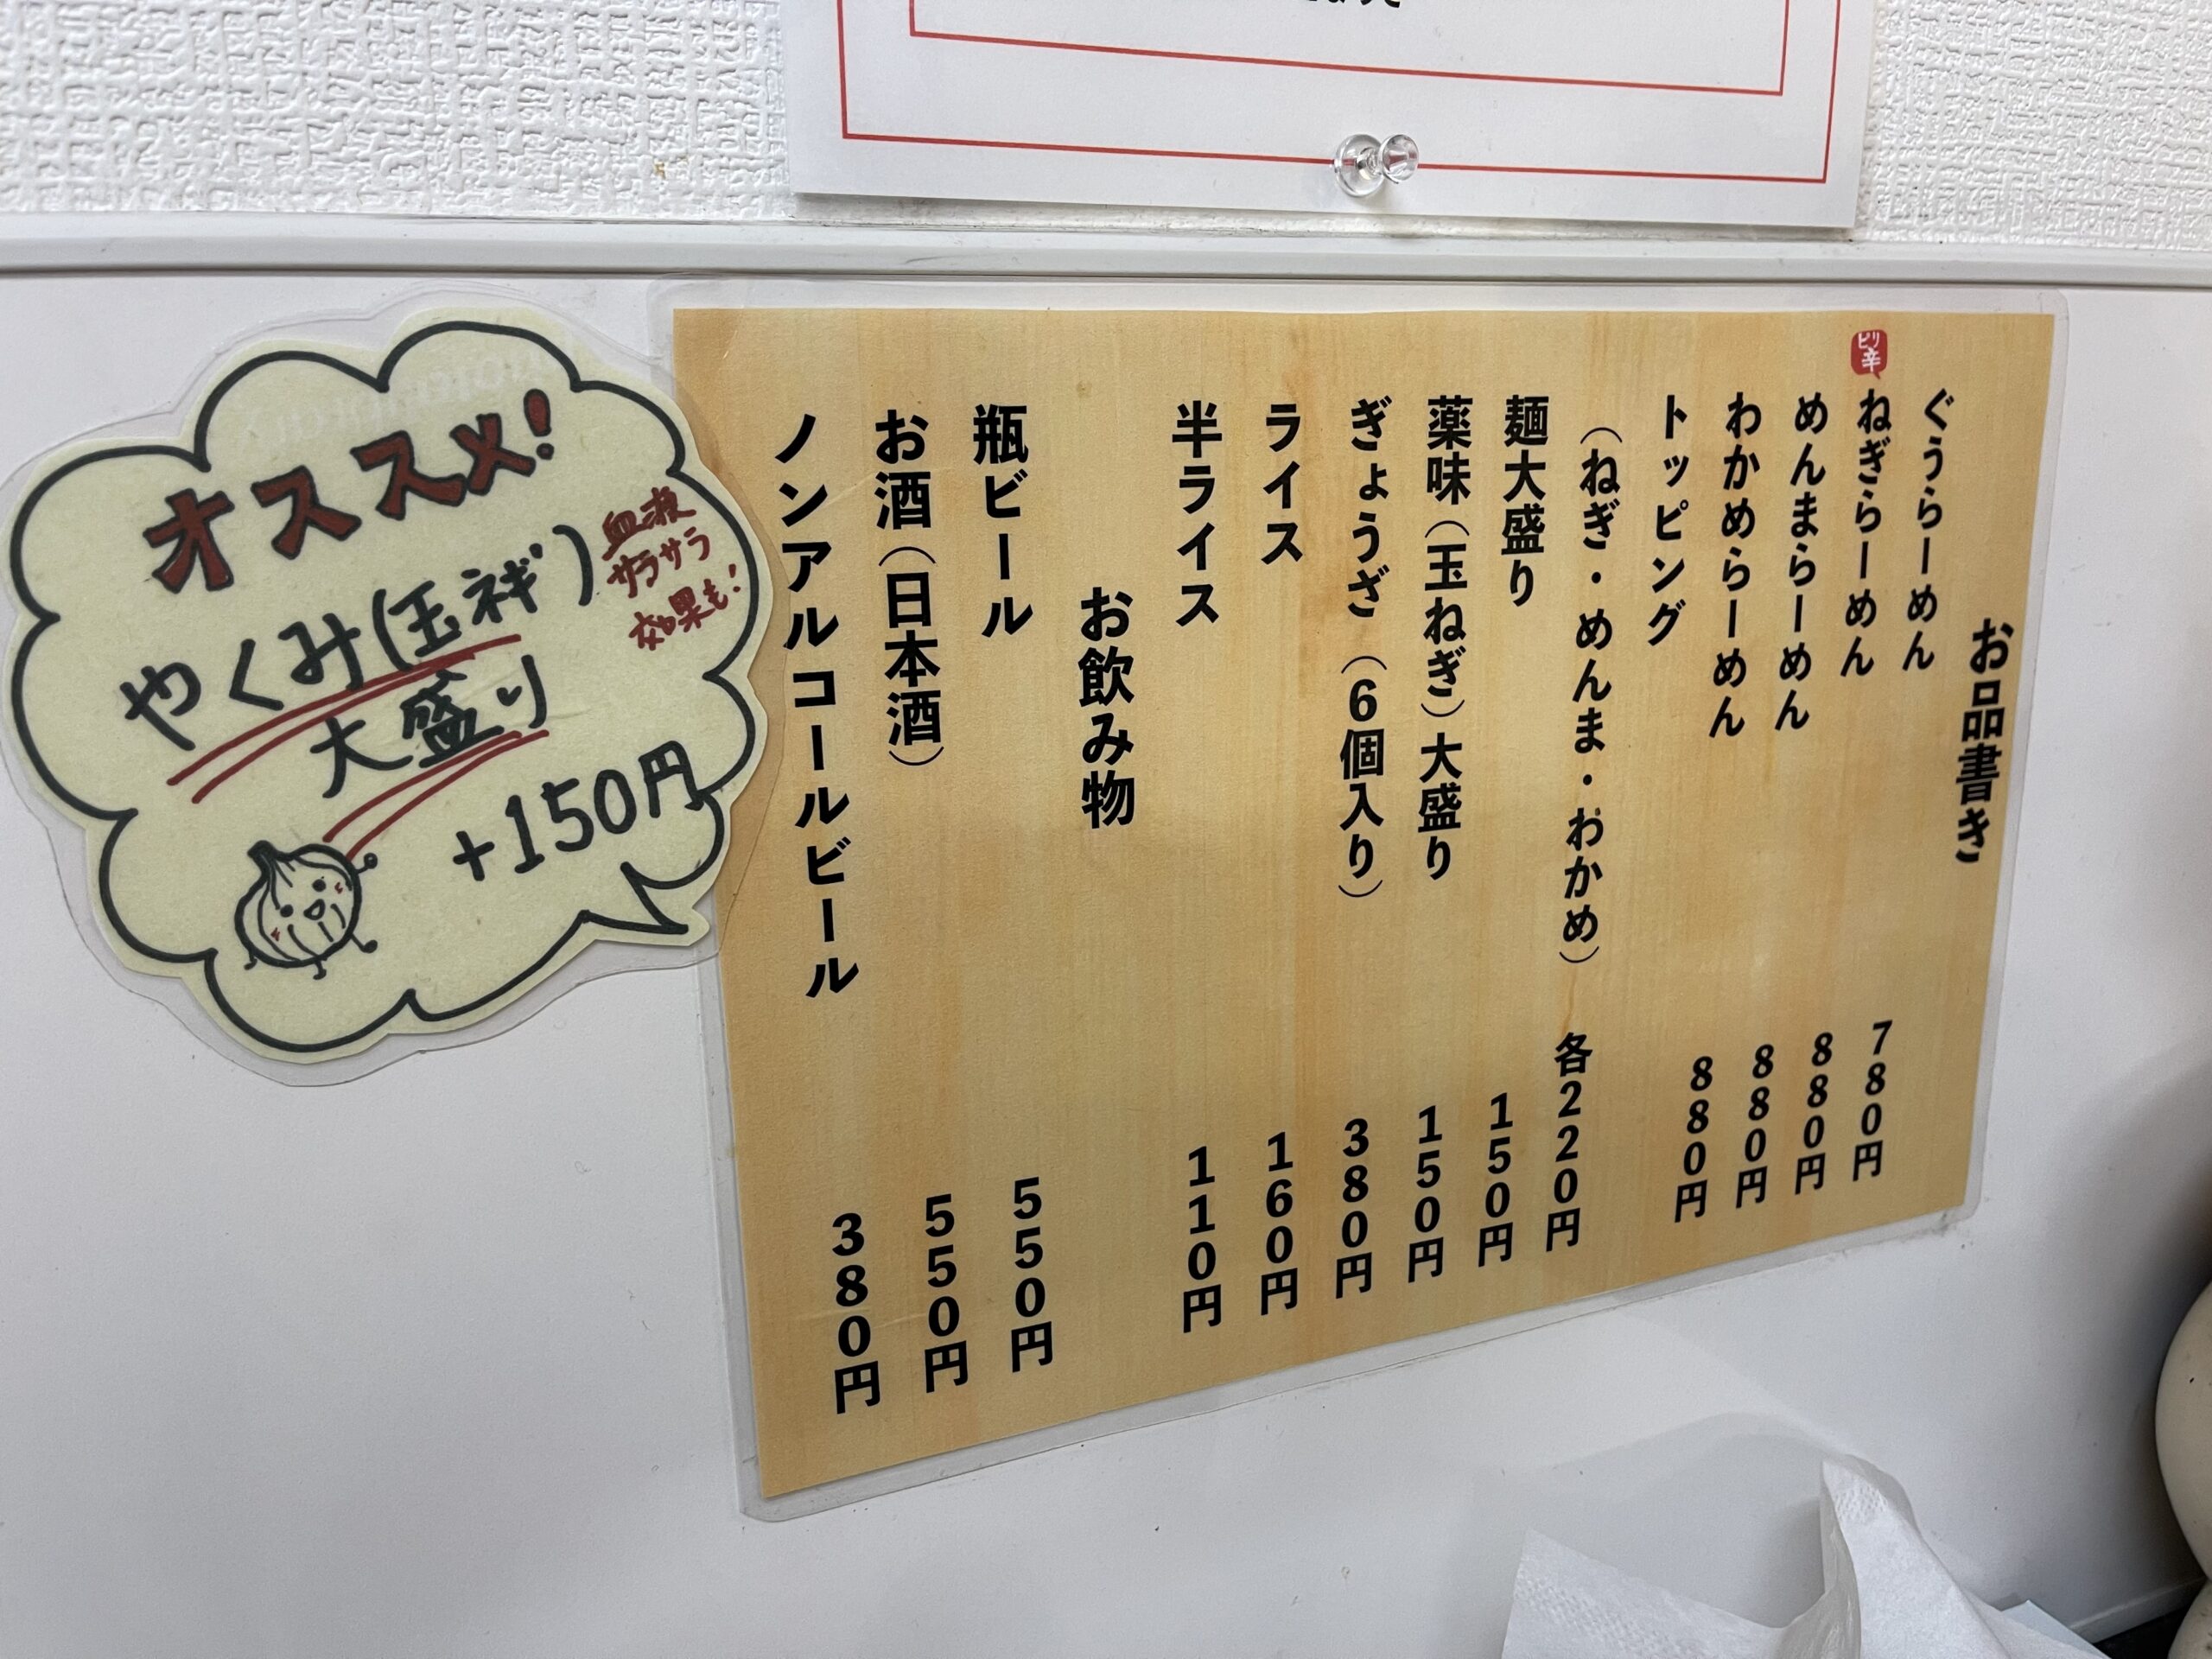 お品書き
ぐうらーめん 780円
ピリ辛
ねぎらーめん 880円
めんまらーめん 880円
わかめらーめん 880円
トッピング
（ねぎ・めんま・わかめ） 各220円
麺大盛り 150円
薬味（玉ねぎ）大盛り 150円
ぎょうざ（6個入り） 380円
ライス 160円
半ライス 110円
お飲み物
瓶ビール 550円
お酒（日本酒） 550円
ノンアルコールビール 380円
オススメ!
やくみ(玉ネギ)
大盛り
+150円
血液
サラサラ
効果も!